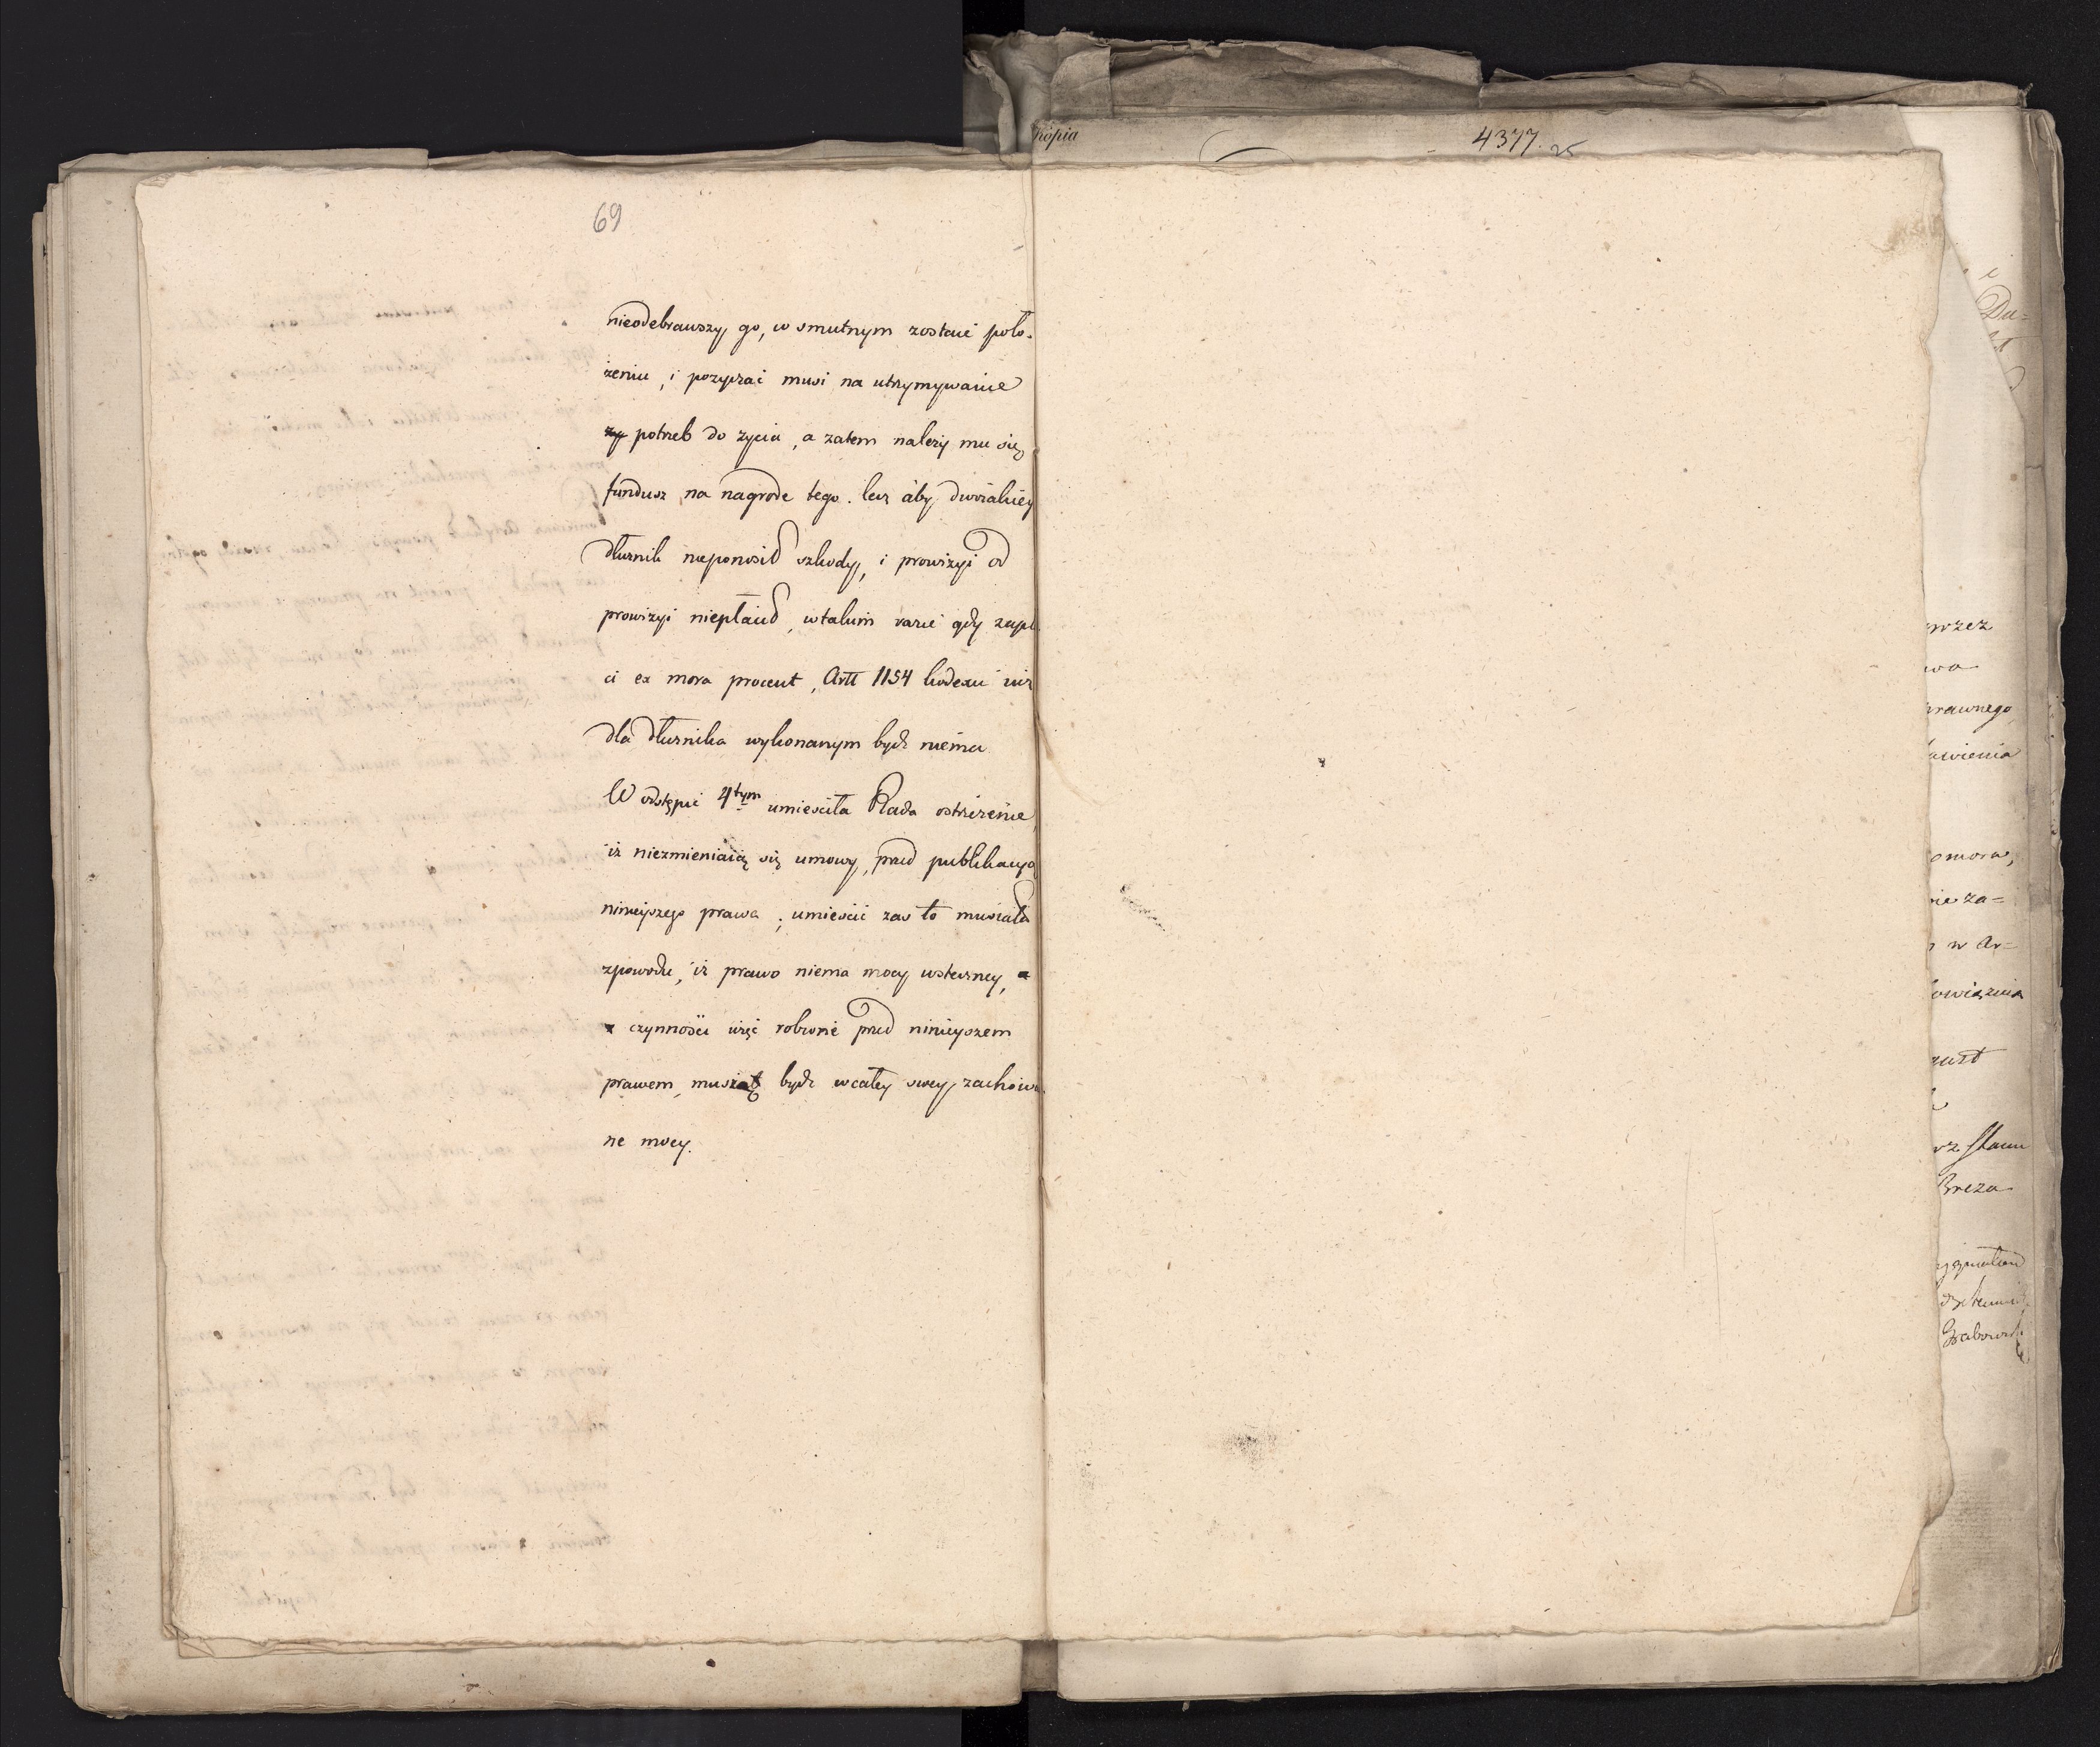 69
nieodebrawszy go, w smutnym zostaie poło-
żeniu, i pozyczai musi na utrzymywanie
potrzeb do życia, a zatem należy mu się
fundusz na nagrode tego. lecz aby
dłużnik nieponosił szkody, i prowizyi od
prowizyi niepłacił, w takim razie gdy zapła
ci ex mora procent, Artt 1154 kodexu iuż
dla dłużnika wykonanym bydź niema
W odstępie 4tym umieściła Rada ostrzeżenie
iż niezmieniaią się umowy, przed publikacyą
ninieyszego prawa, umieścić zaś to musiała
z powodu, iż prawo niema mocy wsteczney, a
czynności więc robione przed ninieyszem
prawem, muszą bydź w całey swey zachowa
ne mocy.
Kopia
4377.
Du=
przez
wa
prawnego
awienia
omora,
nie za=
w Ar=
owiązuia
Breza
Grabowski